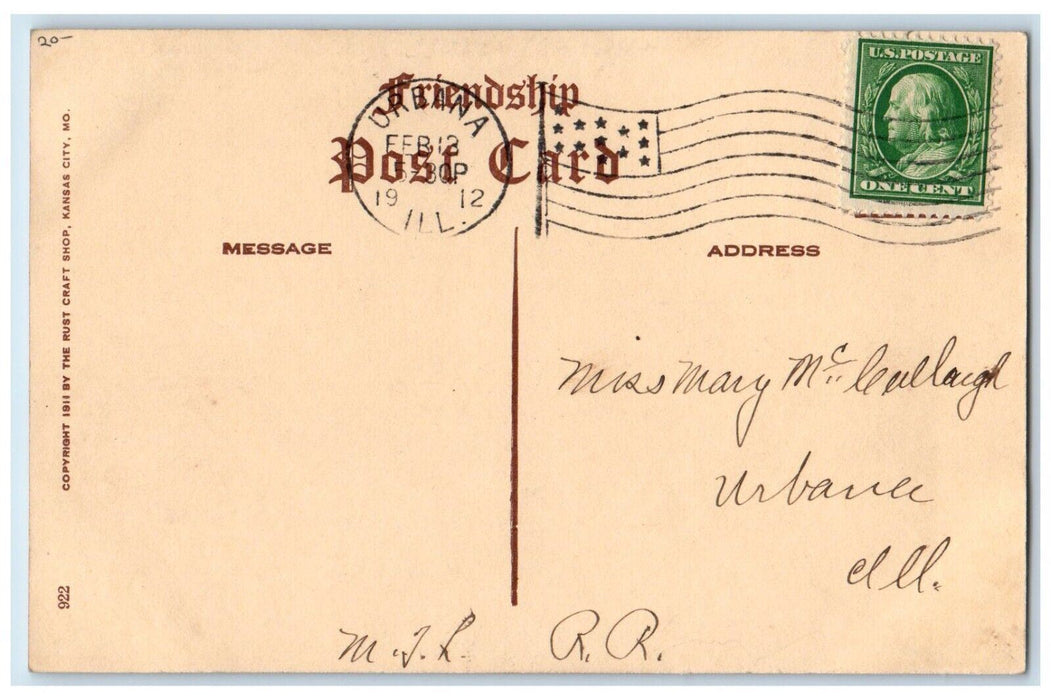 20-
Friendship
Post Card
URBANA
FEB 13
5-30P
19 12
ILL.
U.S. POSTAGE
ONE CENT
MESSAGE
ADDRESS
COPYRIGHT 1911 BY THE RUST CRAFT SHOP, KANSAS CITY, MO.
922
Miss Mary Mc Cullough
Urbana
Ill.
R.R.